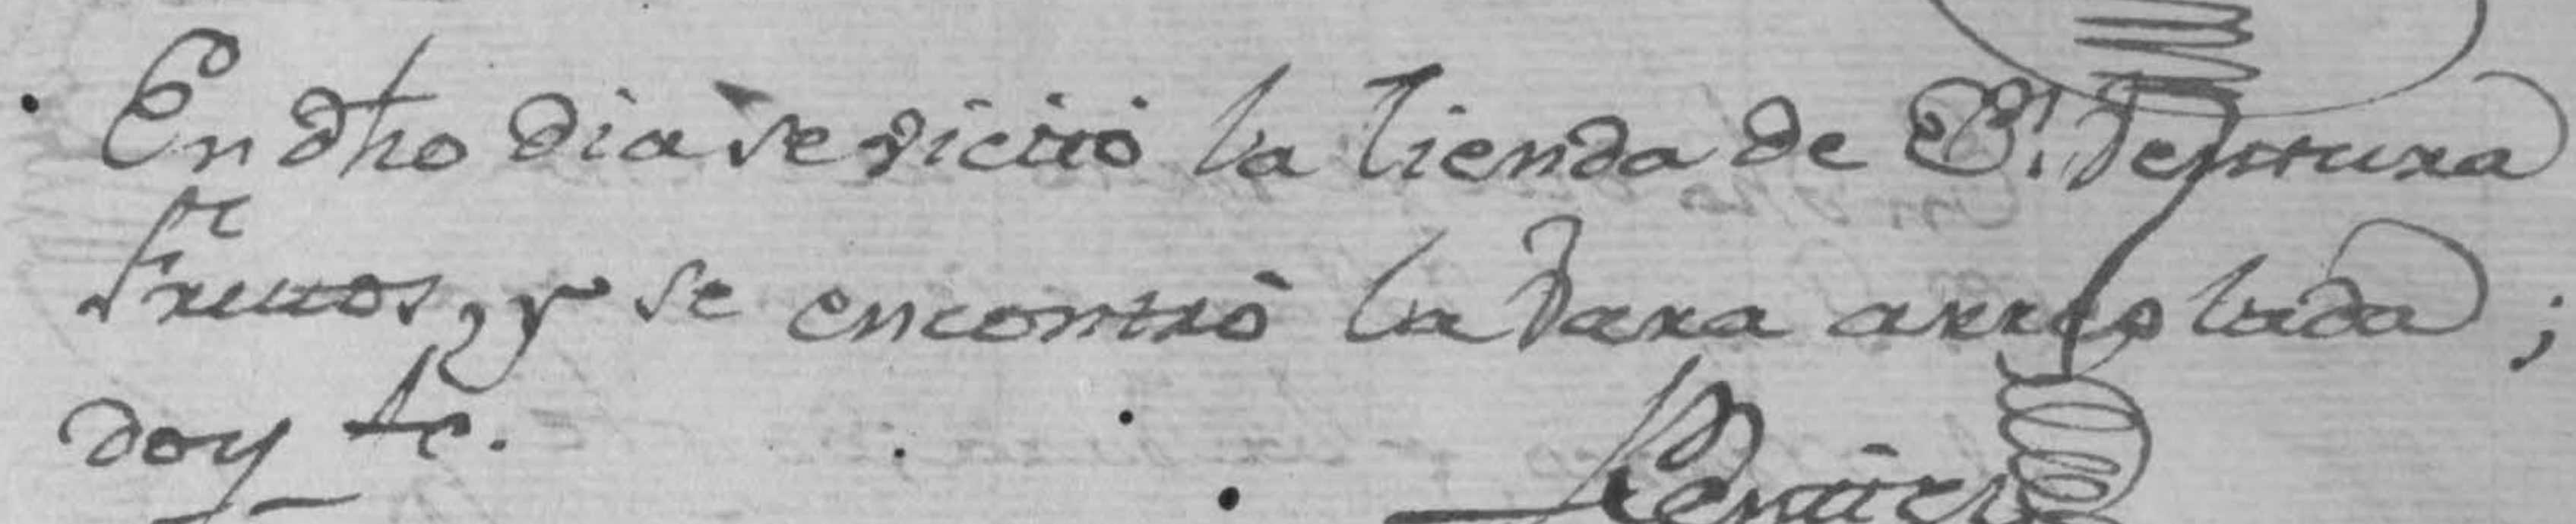 En dho dia se vicitó la tienda de D.n Ventura
Frutos, y se encontró la Vara arreglada;
doy fe.